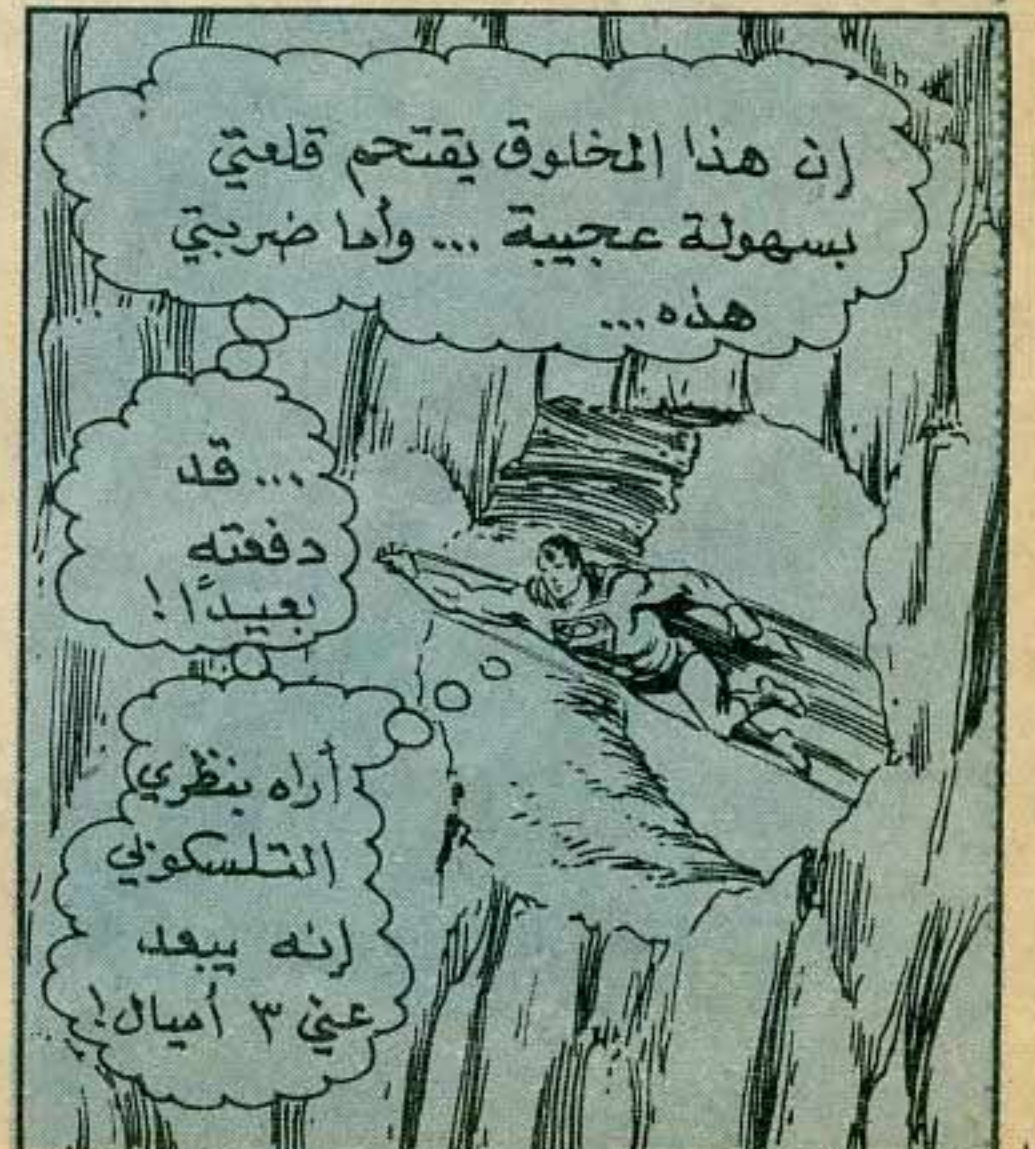 إن هذا المخلوق يقتحم قلعتي
بسهولة عجيبة ... وأما ضربتي
هذه ...
... قد
دفعته
بعيدًا !
أراه بنظري
التلسكوبي
إنه يبعد
عني ٣ أميال !